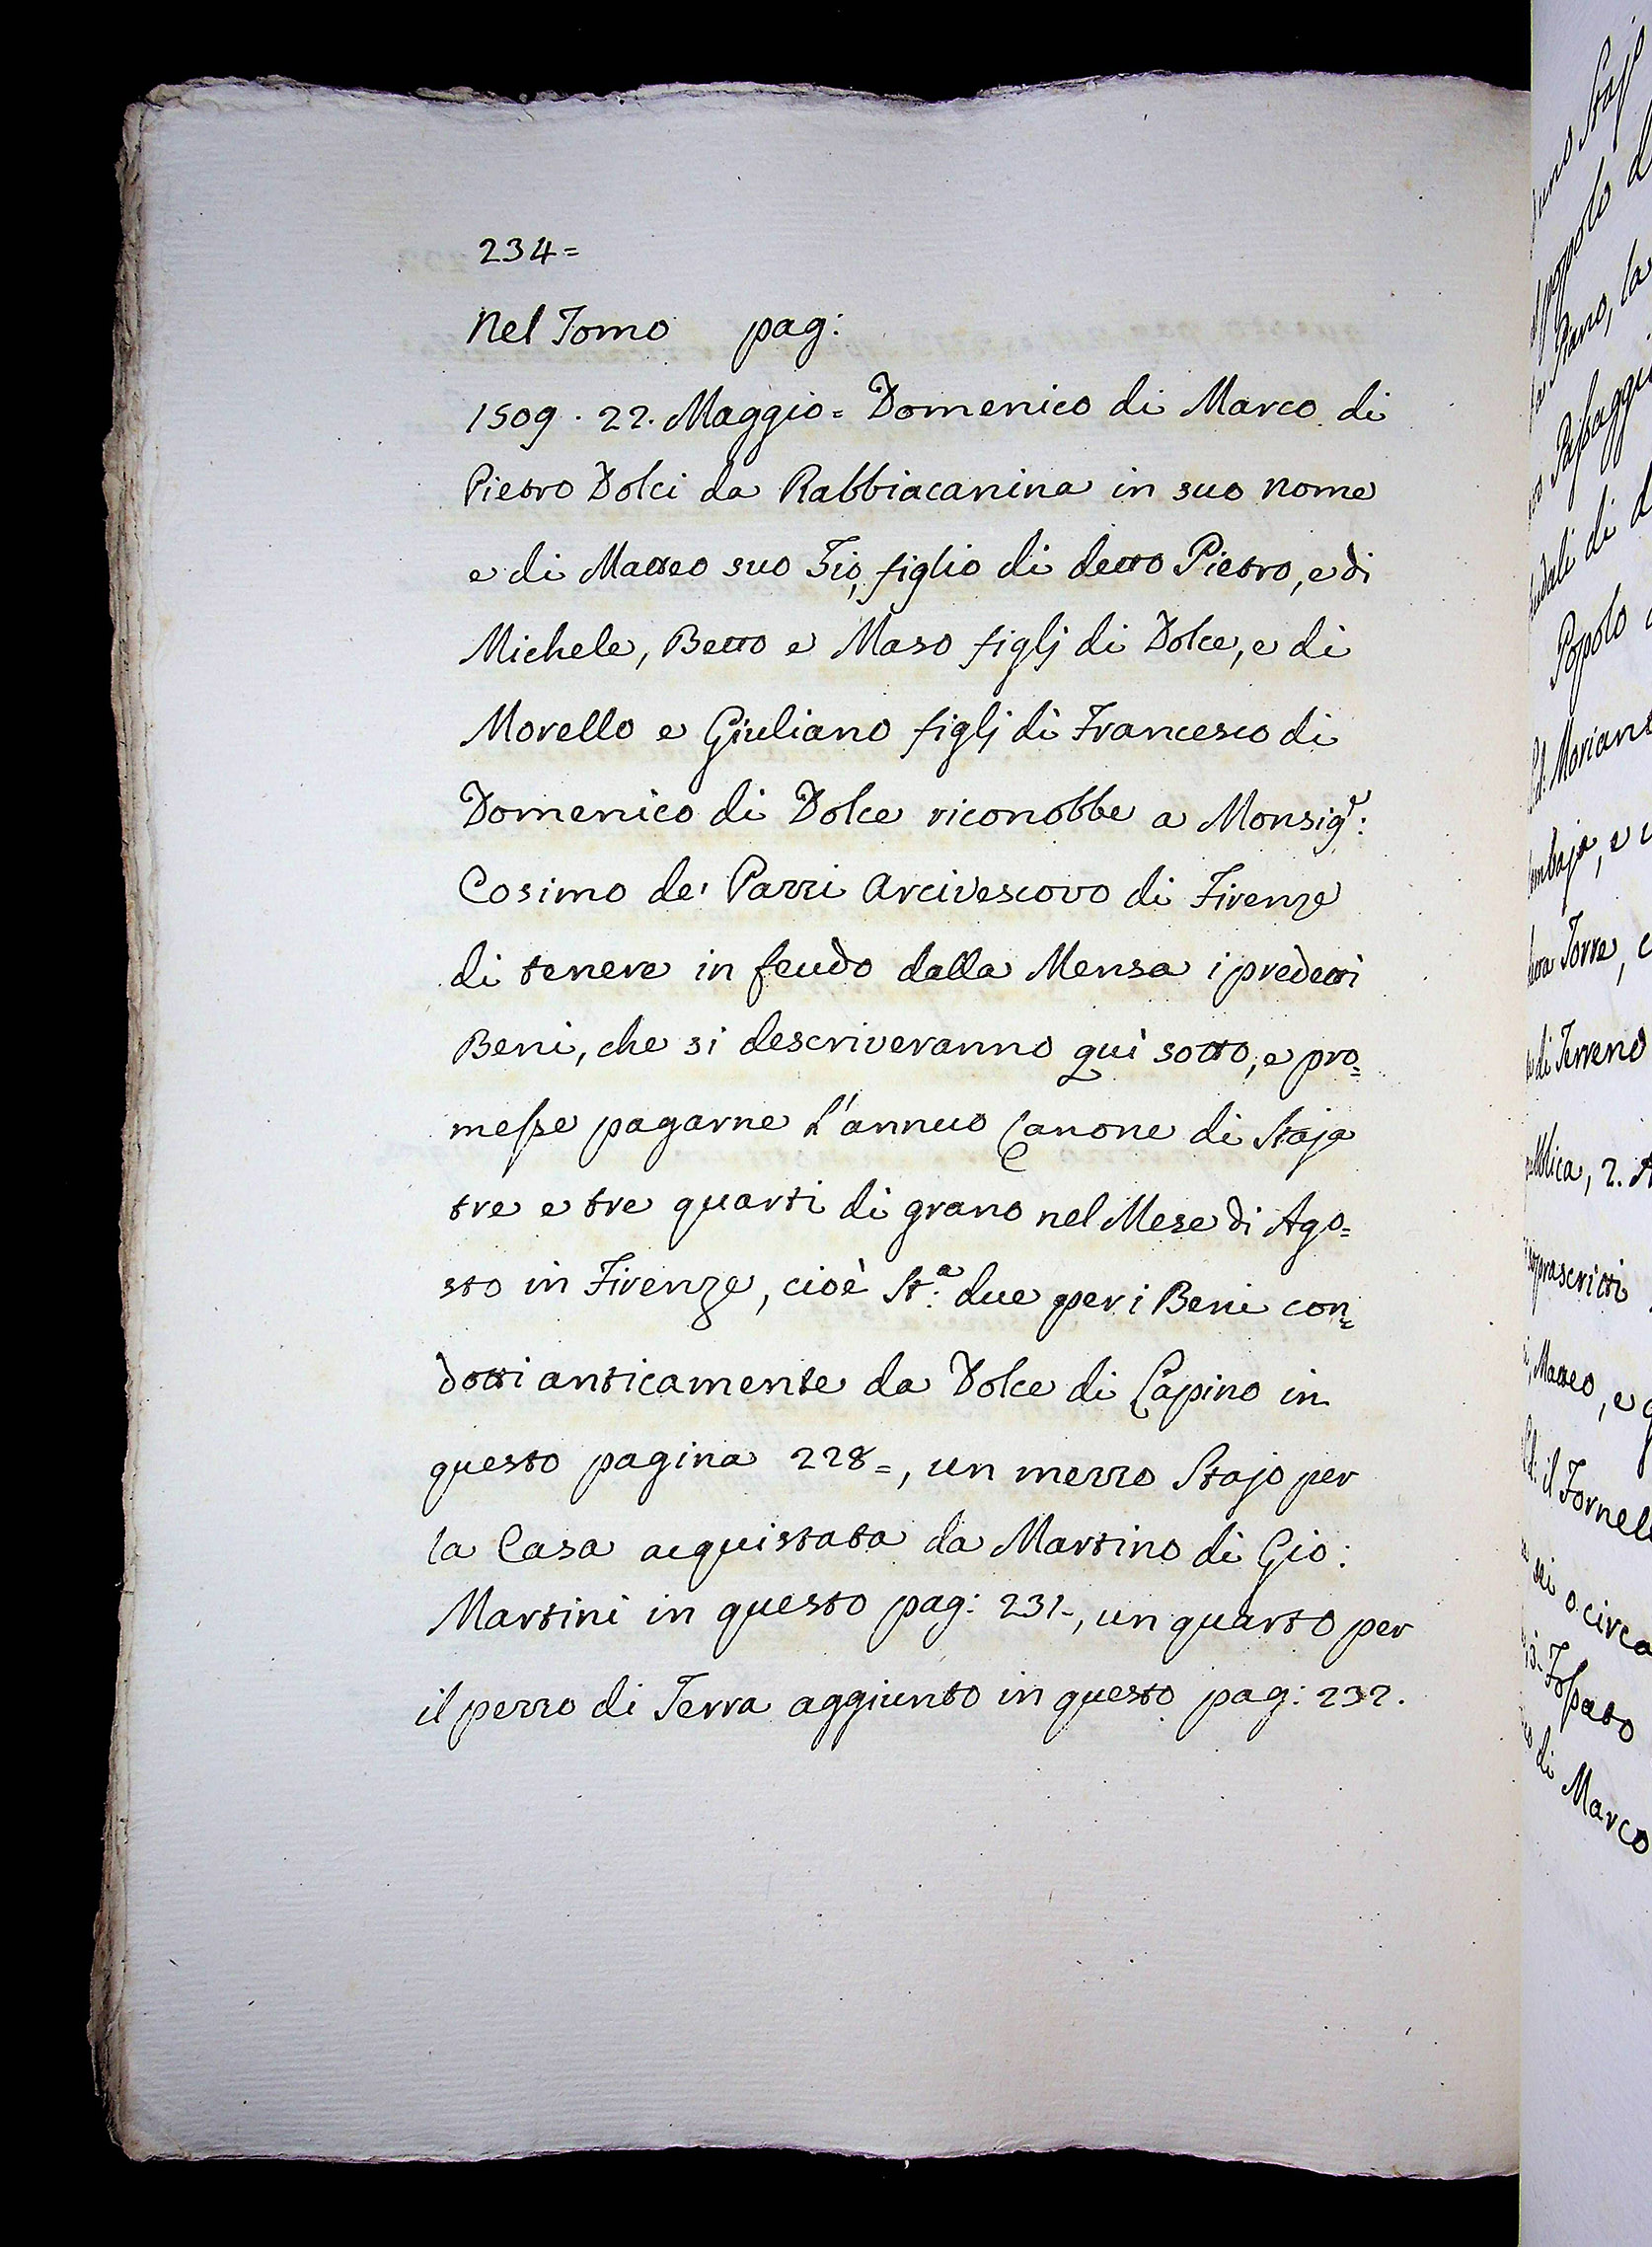 234=
Nel Tomo pag:
1509. 22. Maggio= Domenico di Marco di
Pietro Dolci da Rabbiacanina in suo nome
e di Matteo suo Zio, figlio di detto Pietro, e di
Michele, Betto e Maso figlj di Dolce, e di
Morello e Giuliano figlj di Francesco di
Domenico di Dolce riconobbe a Monsigr:
Cosimo de' Pazzi Arcivescovo di Firenze
di tenere in feudo dalla Mensa i predetti
Beni, che si descriveranno quì sotto, e pro=
messe pagarne l'annuo Canone di Staja
tre e tre quarti di grano nel Mese di Ago=
sto in Firenze, cioè Sta: due per i Beni con=
dotti anticamente da Dolce di Capino in
questo pagina 228=, un mezzo Stajo per
la Casa acquistata da Martino di Gio:
Martini in questo pag: 231-, un quarto per
il pezzo di Terra aggiunto in questo pag: 232.
Stajo
popolo
Piano, la
Passaggi
di
Popolo
Moriano
Torre,
di Terreno
2.
Matteo, e
il Fornell
o circa
di Marco